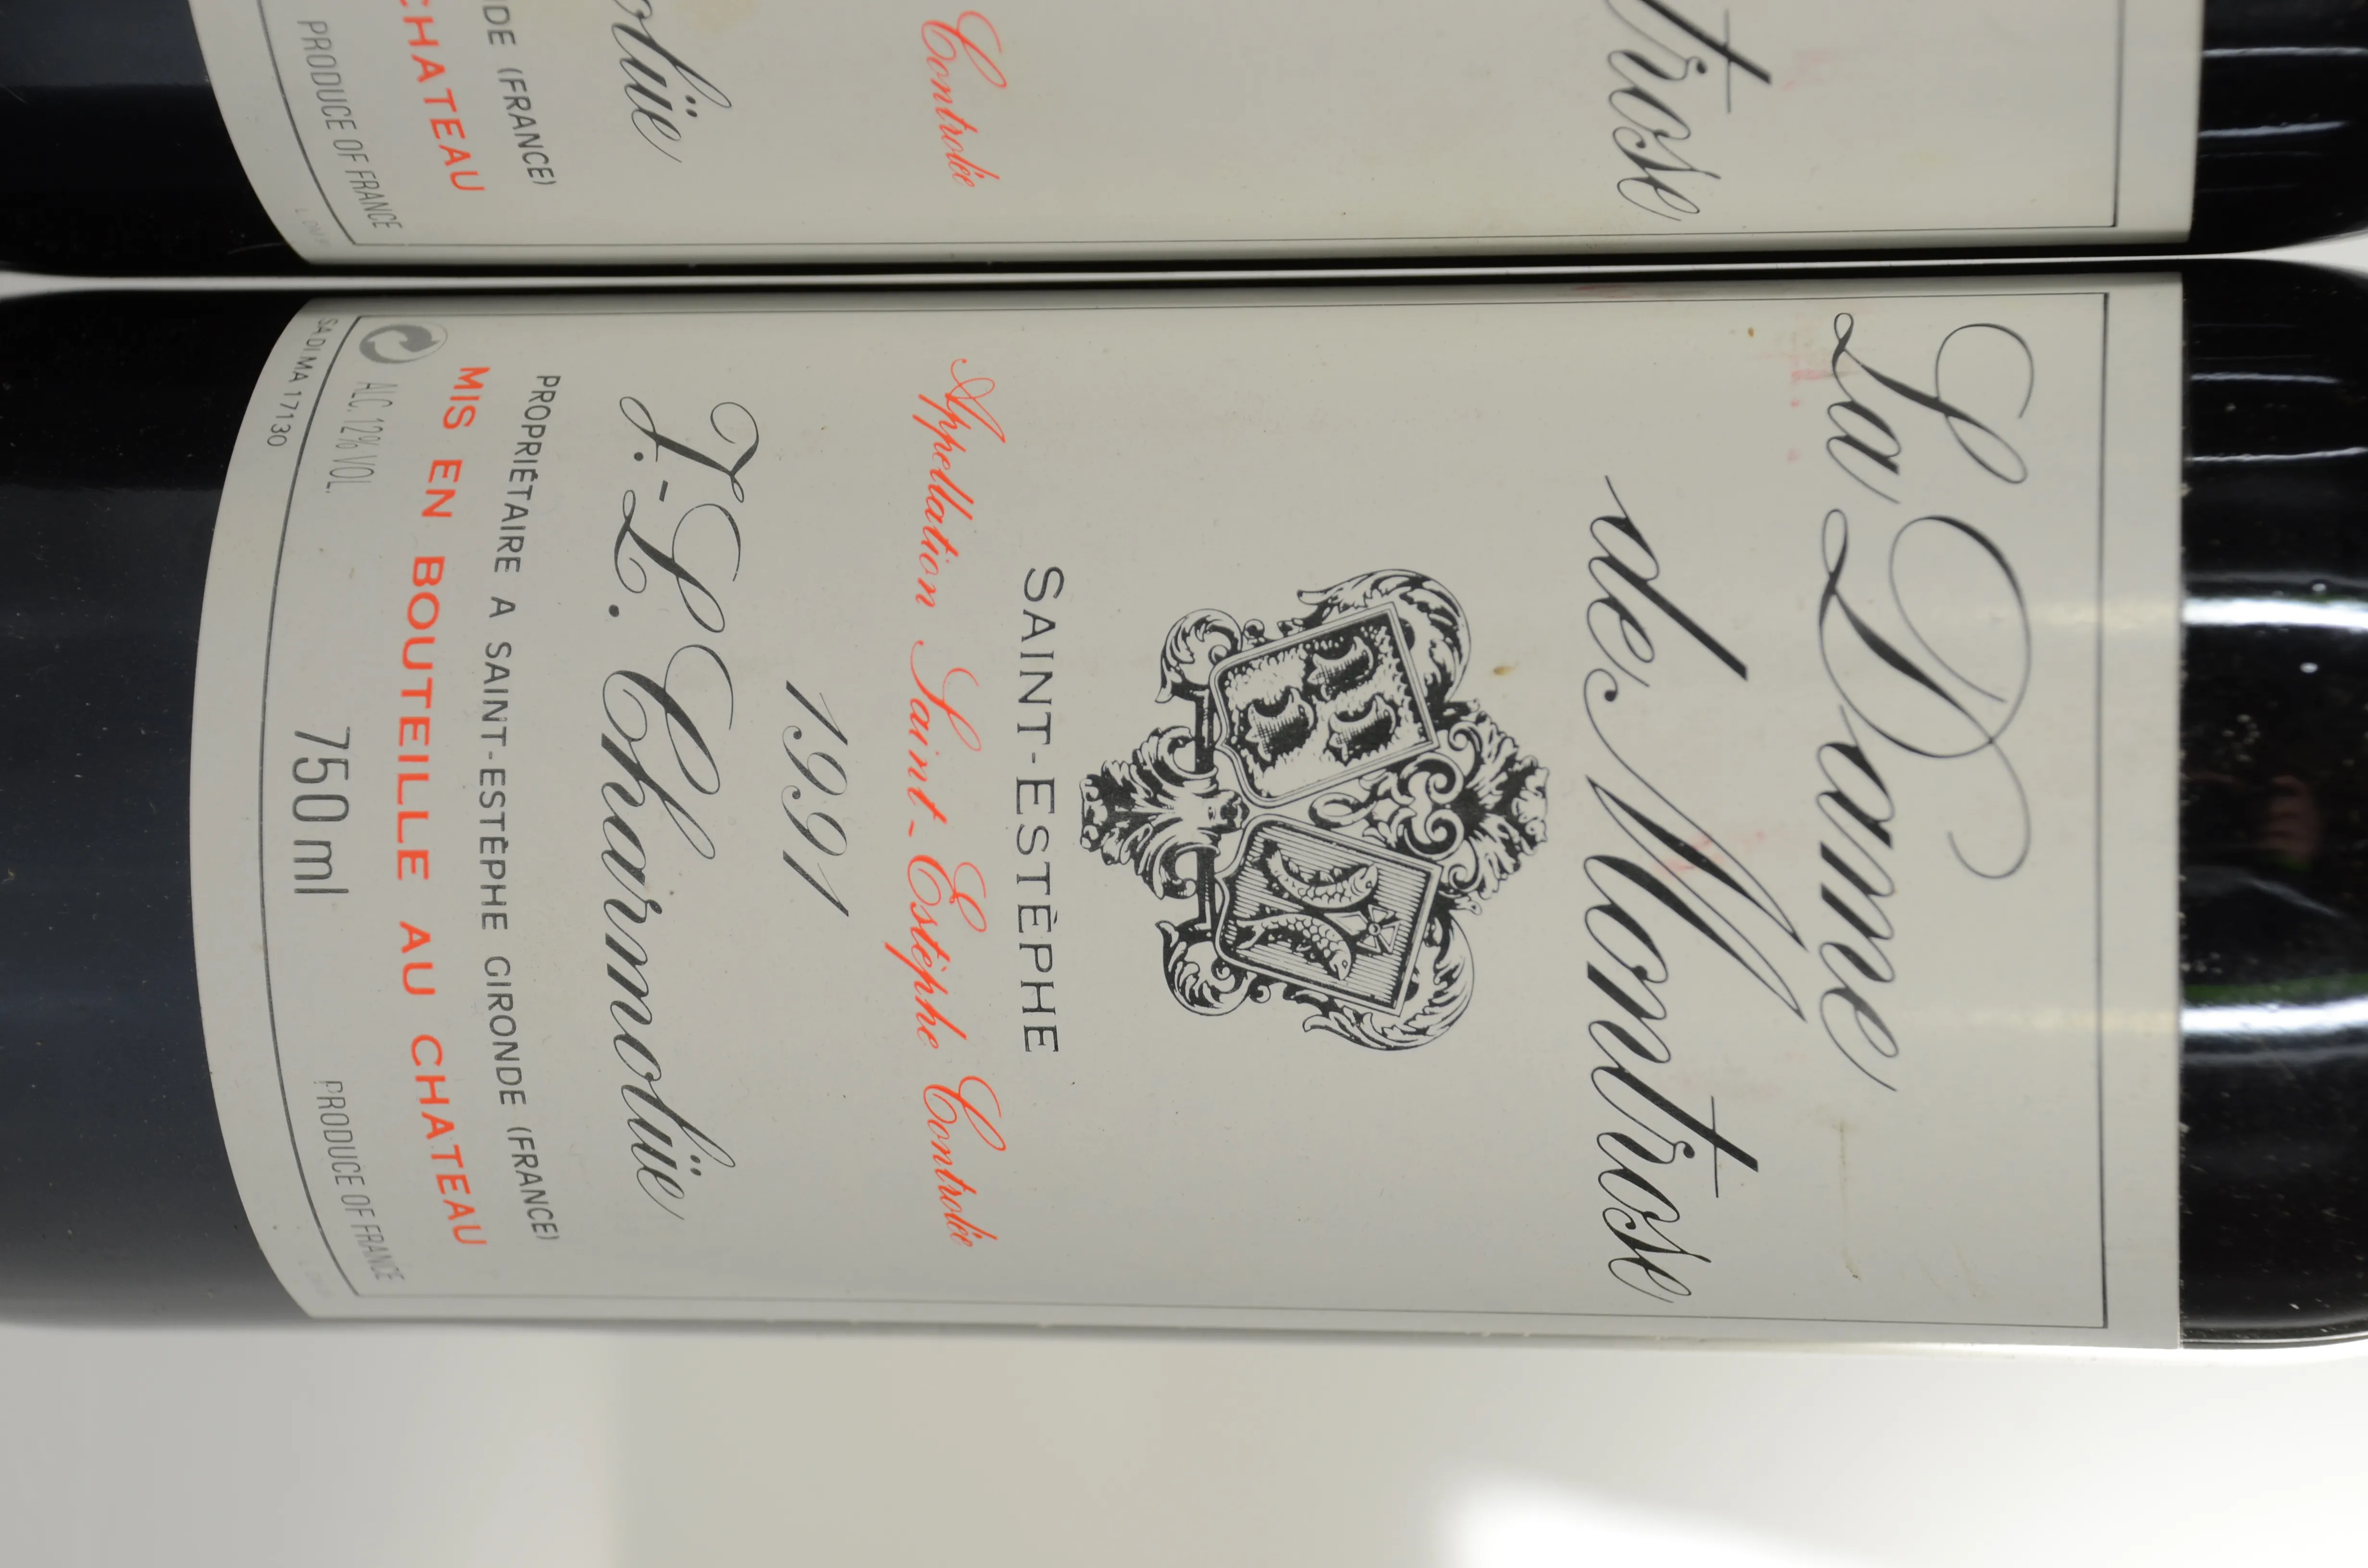 La Dame
de Montrose
SAINT-ESTÈPHE
Appellation Saint-Estèphe Contrôlée
1991
J.-L. Charmolüe
PROPRIÉTAIRE A SAINT-ESTÈPHE GIRONDE (FRANCE)
MIS EN BOUTEILLE AU CHATEAU
ALC. 12% VOL. 750 ml PRODUCE OF FRANCE
SADIMA 17130
trose
Contrôlée
olüe
NDE (FRANCE)
CHATEAU
PRODUCE OF FRANCE